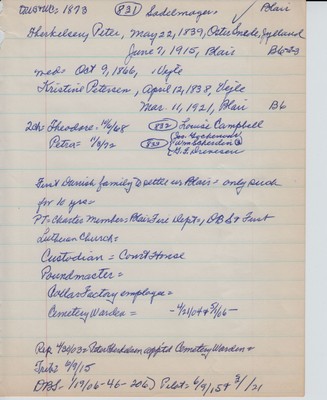 1873 (831) Sadelmager ✓ Blair
Therkelsen, Peter, May 22, 1839, Jylland
June 7, 1915, Blair B6-2-3
med: Oct 9, 1866, Vejle
Kristine Petersen, April 12, 1838, Vejle
Mar. 11, 1921, Blair B6
2ch: Theodore: 4/6/68 (832) Louise Campbell
Petra: (833)
First Danish family to settle in Blair: only such
for 10 yrs=
PT: Charter Member: Blair Fire Dept=, First
Lutheran Church=
Custodian = Court House
Poundmaster =
Collar Factory employee=
Cemetery Warden = -4/21/04 & 5/06-
Rep: 4/30/03= Peter Therkelsen appt'd Cemetery Warden=
Trib: 6/9/15
DBS: (19/06-46-206) Pilot= 6/9/15 & 3/ /21